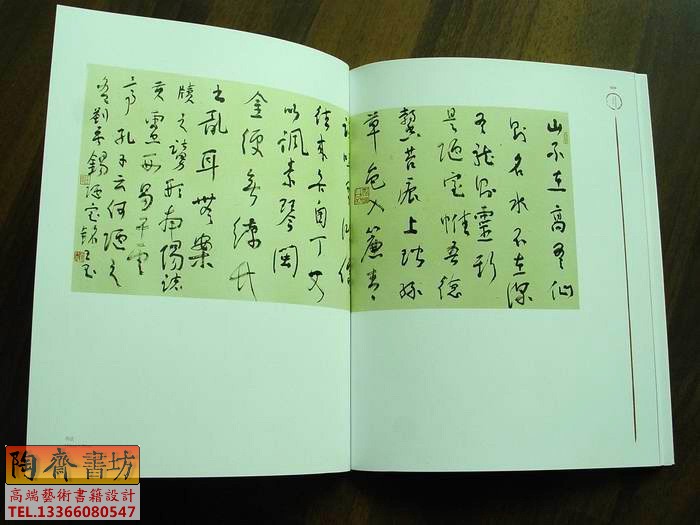 山不在高有仙
則名水不在深
有龍則靈斯
是陋室惟吾德
馨苔痕上階綠
草色入簾青
往來無白丁可
以調素琴閱
金經無絲竹
之亂耳無案
牘之勞形南陽諸
葛廬西蜀子雲
亭孔子云何陋之
有劉禹錫陋室銘
陶齋書坊
高端藝術書籍設計
TEL.13366080547